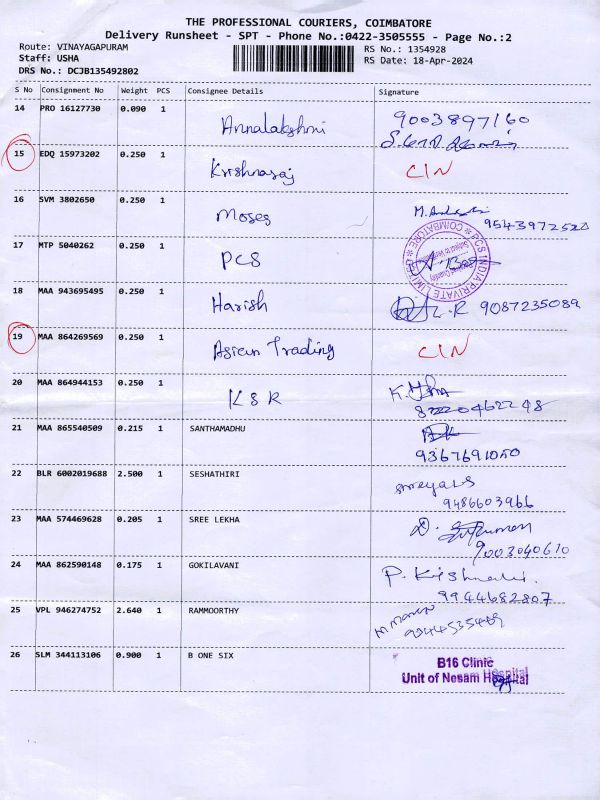 THE PROFESSIONAL COURIERS, COIMBATORE
Delivery Runsheet - SPT - Phone No.:0422-3505555 - Page No.:2
Route: VINAYAGAPURAM RS No.: 1354928
Staff: USHA RS Date: 18-Apr-2024
DRS No.: DCJB135492802
S No Consignment No Weight PCS Consignee Details Signature
14 PRO 16127730 0.090 1 Annalakshmi 9003897160
15 EDQ 15973202 0.250 1 Krishnaraj CIN
16 SVM 3802650 0.250 1 Moses 9543972522
17 MTP 5040262 0.250 1 PCS
PCS INDIA PRIVATE LIMITED COIMBATORE
18 MAA 943695495 0.250 1 Harish 9087235089
19 MAA 864269569 0.250 1 Asian Trading CIN
20 MAA 864944153 0.250 1 KSR
21 MAA 865540509 0.215 1 SANTHAMADHU
9367691050
22 BLR 6002019688 2.500 1 SESHATHIRI
9486603966
23 MAA 574469628 0.205 1 SREE LEKHA
9003040610
24 MAA 862590148 0.175 1 GOKILAVANI
9944682807
25 VPL 946274752 2.640 1 RAMMOORTHY
26 SLM 344113106 0.900 1 B ONE SIX B16 Clinic
Unit of Nesam Hospital